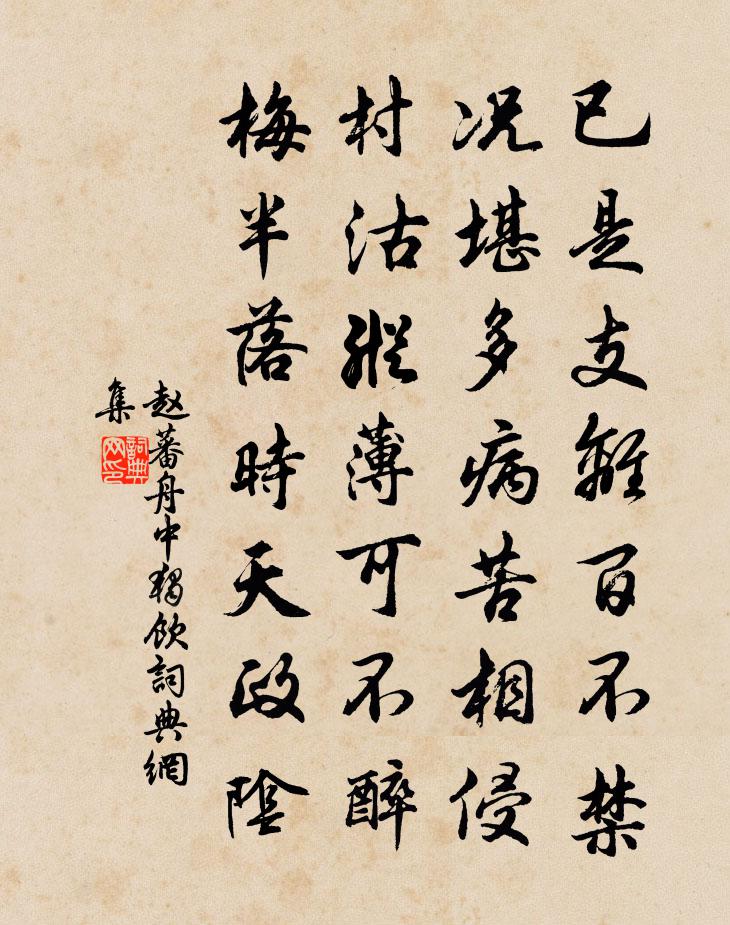 已是支離百不禁
况堪多病苦相侵
村沽縱薄可不醉
梅半落時天政陰
赵蕃舟中獨飲詞典網
集
詞典网印